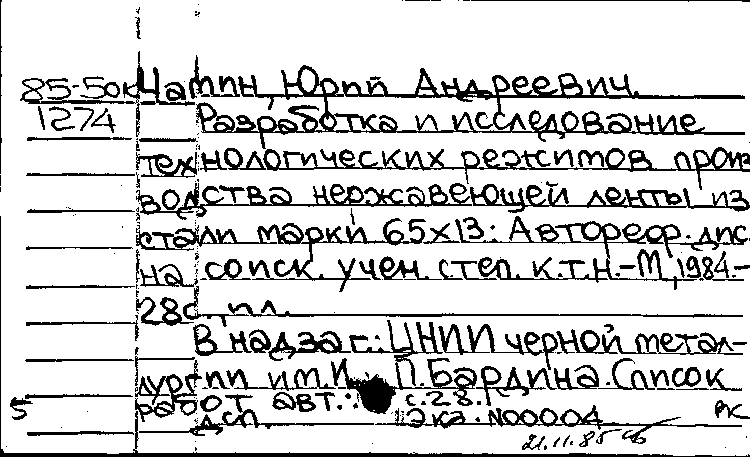 85-50к Чапин, Юрий Андреевич.
1274 Разработка и исследование
технологических режимов произ
водства нержавеющей ленты из
стали марки 65х13: Автореф. дис.
на соиск. учен. степ. к.т.н.-М., 1984.-
28с., ил.
В надзаг.: ЦНИИ черной метал-
лургии им. И. П. Бардина. Список
5 работ авт.: с.28. РК
Дсп. Экз. N00004
21.11.85